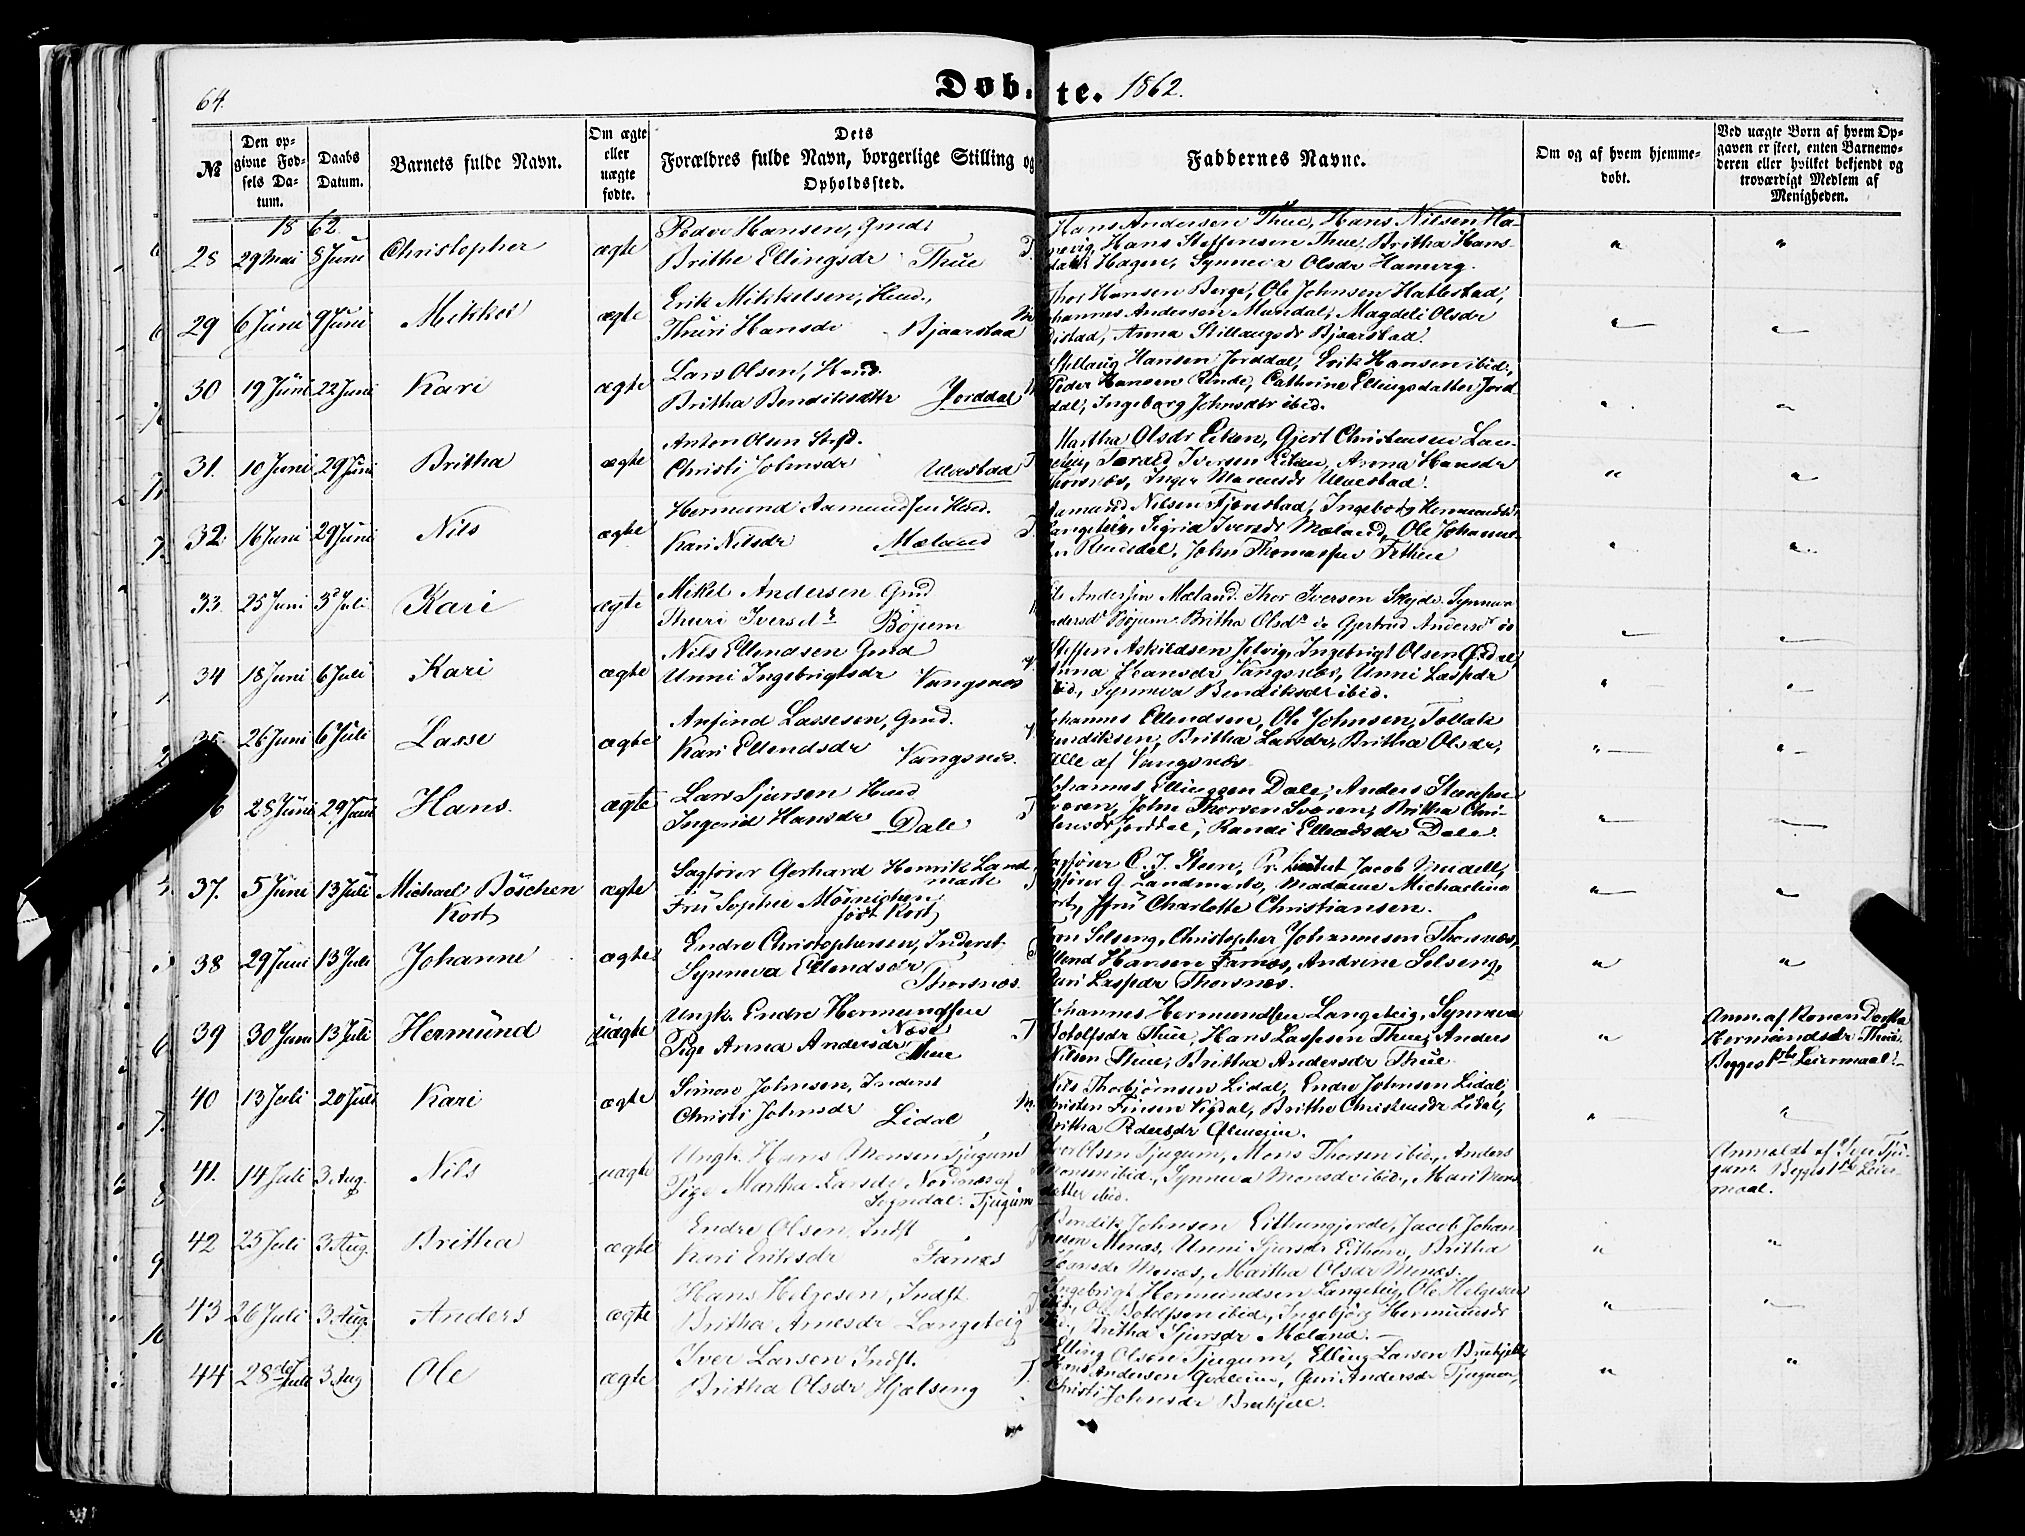 64.
Døb- te. 1862.
№
Den op-
givne Fød-
sels Da-
tum.
Daabs
Datum.
Barnets fulde Navn.
Om ægte
eller
uægte
fødte.
Dets
Forældres fulde Navn, borgerlige Stilling og
Opholdssted.
Faddernes Navne.
Om og af hvem hjemme-
døbt.
Ved uægte Børn af hvem Op-
gaven er skeet, enten Barnemo-
deren eller hvilket bekjendt og
troværdigt Medlem af
Menigheden.
1862.
28 29 Mai 8 Juni Christopher ægte
Peder Hansen, Gmd.
Brithe Ellingsdr Thue
Hans Andersen Thue, Hans Nilsen Ha-
nevig, Hans Steffensen Thue, Britha Hans-
Hagen, Synneva Olsdr Hanevig.
29 6 Juni 9 Juni Mikkel ægte
Erik Mikkelsen, Huud.,
Thuri Hansdr Bjaarstad
Thor Hansen Berge, Ole Johnsen Hatlestad,
Johannes Andersen Mundal, Magdeli Olsdr
Anna Stillaugsdr Bjaarstad.
30 19 Juni 22 Juni Kari ægte
Lars Olsen, Huud.
Britha Bendiksdtr Jorddal
Stillaug Hansen Jorddal, Erik Hansen ibid.,
Peder Hansen Rinde, Cathrine Ellingsdatter Jord-
dal, Ingeborg Johnsdtr ibid.
31. 10 Juni 29 Juni Britha ægte
Anton Olsen
Christi Johnsdr Ulvestad
Martha Olsdr Eitun, Gjert Christensen Lan-
Torald Iversen Eitun, Anna Hansdr
Thorsnæs, Inger Monsdr Ulvestad.
32. 16 Juni 29 Juni Nils ægte
Hermund Aamundsen Huud.
Kari Nilsdr Mæland
Aamund Nilsen Tjønstad, Ingeborg Hermundsdr
Langeteig, Sigrid Iversdr Mæland, Ole Johannes-
sen Rumsdal, John Thomassen Fethun
33. 25 Juni 3d Juli Kari ægte
Mikel Andersen Gmd
Thuri Iversdr Bøjum
Ole Andersen Mæland. Thor Iversen Skejde. Synneva
Andersdr Bøjum Britha Olsdr do Gjertrud Andersdr do
34 18 Juni 6 Juli Kari ægte
Nils Ellendsen Gmd
Unni Ingebrigtsdr Vangsnæs
Steffen Askildsen Jelvig, Ingebrigt Olsen Ørdal,
Anna Hansdr Vangsnæs, Unni Laspdr
ibid., Synneva Bendiksdr ibid.
26 Juni 6 Juli Lasse ægte
Anfind Lassesen, Gmd.
Kari Ellendsdr Vangsnæs.
Johannes Ellendsen, Ole Johnsen, Tollak
Bendiksen, Britha Larsdr, Britha Olsdr,
Alle af Vangsnæs
28 Juni 29 Juni Hans. ægte
Lars Sjursen Huud
Ingerid Hansdr Dale
Johannes Ellingsen Dale, Anders
Sværen, John Thorsen Sværen, Britha Chri-
stensdr Jorddal, Randi Ellendsdr Dale.
37. 5 Juni 13 Juli Michael Böschen
Kort ægte
Sagfører Gerhard Henrik Land
mark
Fru Sophie Mönichen
født Kort
Sagfører C. J. Steen, Jacob Meidell,
Sagfører G. Landmark, Madame Michaeline
Kort, Jfru Charlotte Christiansen.
38 29 Juni 13 Juli Johanne ægte
Endre Christophersen, Inderst
Synneva Ellendsdr Thorsnæs.
Selseng, Christopher Johannesen Thorsnæs,
Ellend Hansen Farnæs, Andrine Selseng,
Guri Laspdr Thorsnæs.
39 30 Juni 13 Juli Hermund uægte
Ungk. Endre Hermundsen
Næse
Pige Anna Andersdr Thue
Johannes Hermundsen Langeteig, Synneva
Botolfsdr Thue, Hans Lassesen Thue, Anders
Nilsen Thue, Britha Andersdr Thue
Anm. af Konen Dorthe
Hermundsdr Thue.
Begges 1ste Leiermaal.
40 13 Juli 20 Juli Kari ægte
Simon Johnsen, Inderst
Christi Johnsdr Lidal
Nils Thorbjørnsen Lidal, Endre Johnsen Lidal,
Christen Finsen Vigdal, Britha Christensdr Lidal,
Britha Pedersdr
41. 14 Juli 3 Aug. Nils uægte
Ungk. Hans Monsen Tjugum
Pige Martha Larsdr Nornæs af
Sogndal. Tjugum
Iver Olsen Tjugum, Mons Thorsen ibid., Anders
Monsen ibid., Synneva Monsdr ibid., Mari Mons
datter ibid.
Anmeldt af Tju-
gum. Begges 1ste Leier-
maal.
42 25 Juli 3 Aug. Britha ægte
Endre Olsen, Indst
Kari Eriksdr Farnæs
Bendik Johnsen Eithungjerde, Jacob Johan-
nesen Menæs, Unni Sjursdr Eithun, Britha
Hansdr Menæs, Martha Olsdr Menæs.
43 26 Juli 3 Aug. Anders ægte
Hans Helgesen, Indst.
Britha Arnesdr Langeteig
Ingebrigt Hermundsen Langeteig, Ole Helgesen
ibid., Ole Botolfsen ibid., Ingebjørg Hermundsdr
ibid., Britha Sjursdr Mæland.
44 28de Juli 3 Aug Ole ægte
Iver Larsen Indst.
Britha Olsdr Hjelseng
Elling Olsen Tjugum, Elling Larsen
Hans Andersen Guri Andersdr Tjugum,
Christi Johnsdr